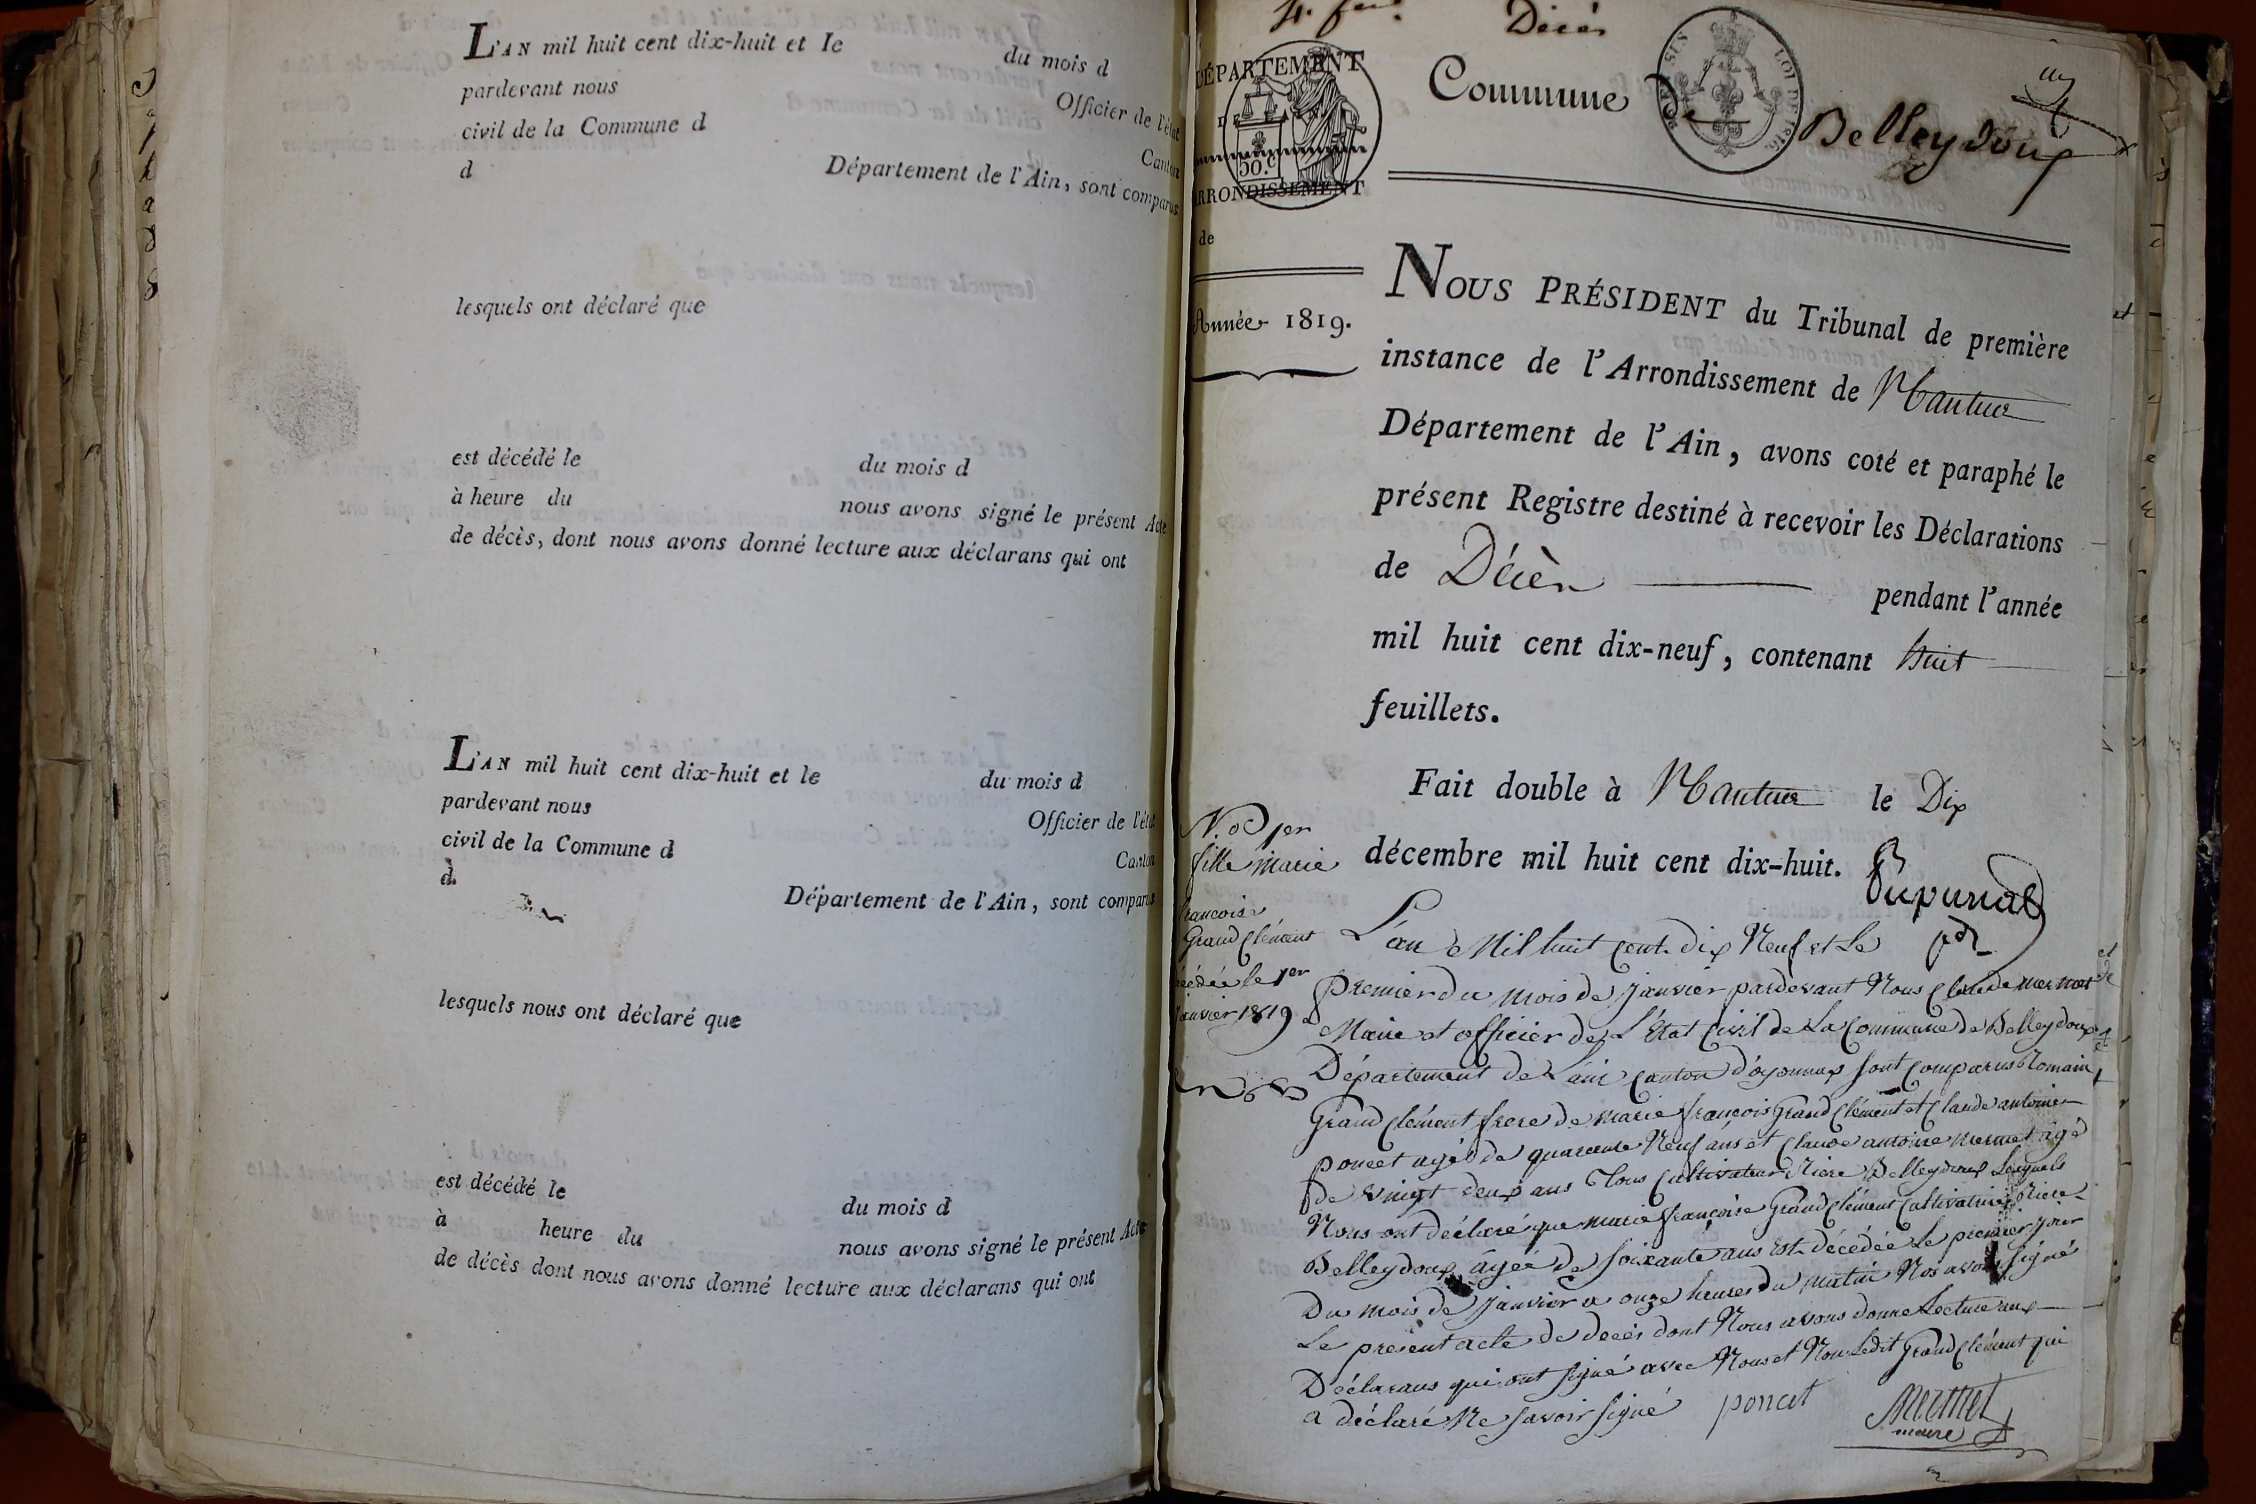 L'AN mil huit cent dix-huit et le du mois d
pardevant nous Officier de l'état
civil de la Commune d Canton
d Département de l'Ain, sont comparus
lesquels ont déclaré que
est décédé le du mois d
à heure du nous avons signé le présent Acte
de décès, dont nous avons donné lecture aux déclarans qui ont
L'AN mil huit cent dix-huit et le du mois d
pardevant nous Officier de l'état
civil de la Commune d Canton
d Département de l'Ain, sont comparus
lesquels nous ont déclaré que
est décédé le du mois d
à heure du nous avons signé le présent Acte
de décès dont nous avons donné lecture aux déclarans qui ont
Décès
DÉPARTEMENT
DE
50.c
ARRONDISSEMENT
de
Année 1819.
Commune De Belleydoux
NOUS PRÉSIDENT du Tribunal de première
instance de l'Arrondissement de Nantua
Département de l'Ain, avons coté et paraphé le
présent Registre destiné à recevoir les Déclarations
de Décès pendant l'année
mil huit cent dix-neuf, contenant huit
feuillets.
Fait double à Nantua le Dix
décembre mil huit cent dix-huit.
N.o 1er
fille marie
francoise
Grand Clément
décédée le 1er
Janvier 1819
L'an Mil huit Cent Dix Neuf et Le
premier du mois de Janvier pardevant Nous Claude mermet
Maire et officier de L'Etat Civil de La Commune de Belleydoux
Département de L'ain Canton d'oyonnax sont Comparus Romain
Grand Clément frere de marie françois Grand Clément et Claude antoine
poncet agé de quarante Neuf ans et Claude antoine mermet agé
de vingt deux ans Tous Cultivateur Riere Belleydoux Lesquels
Nous ont déclaré que marie françoise Grand Clément Cultivatrice Riere
Belleydoux âgée de soixante ans est décédée Le premier jour
Du mois de Janvier a onze heures du matin Nos avons signé
Le present acte de décès dont Nous avons donné Lecture aux
Déclarans qui ont signé avec Nous et Non Ledit Grand Clément qui
a déclaré Ne savoir signé poncet Mermet
maire